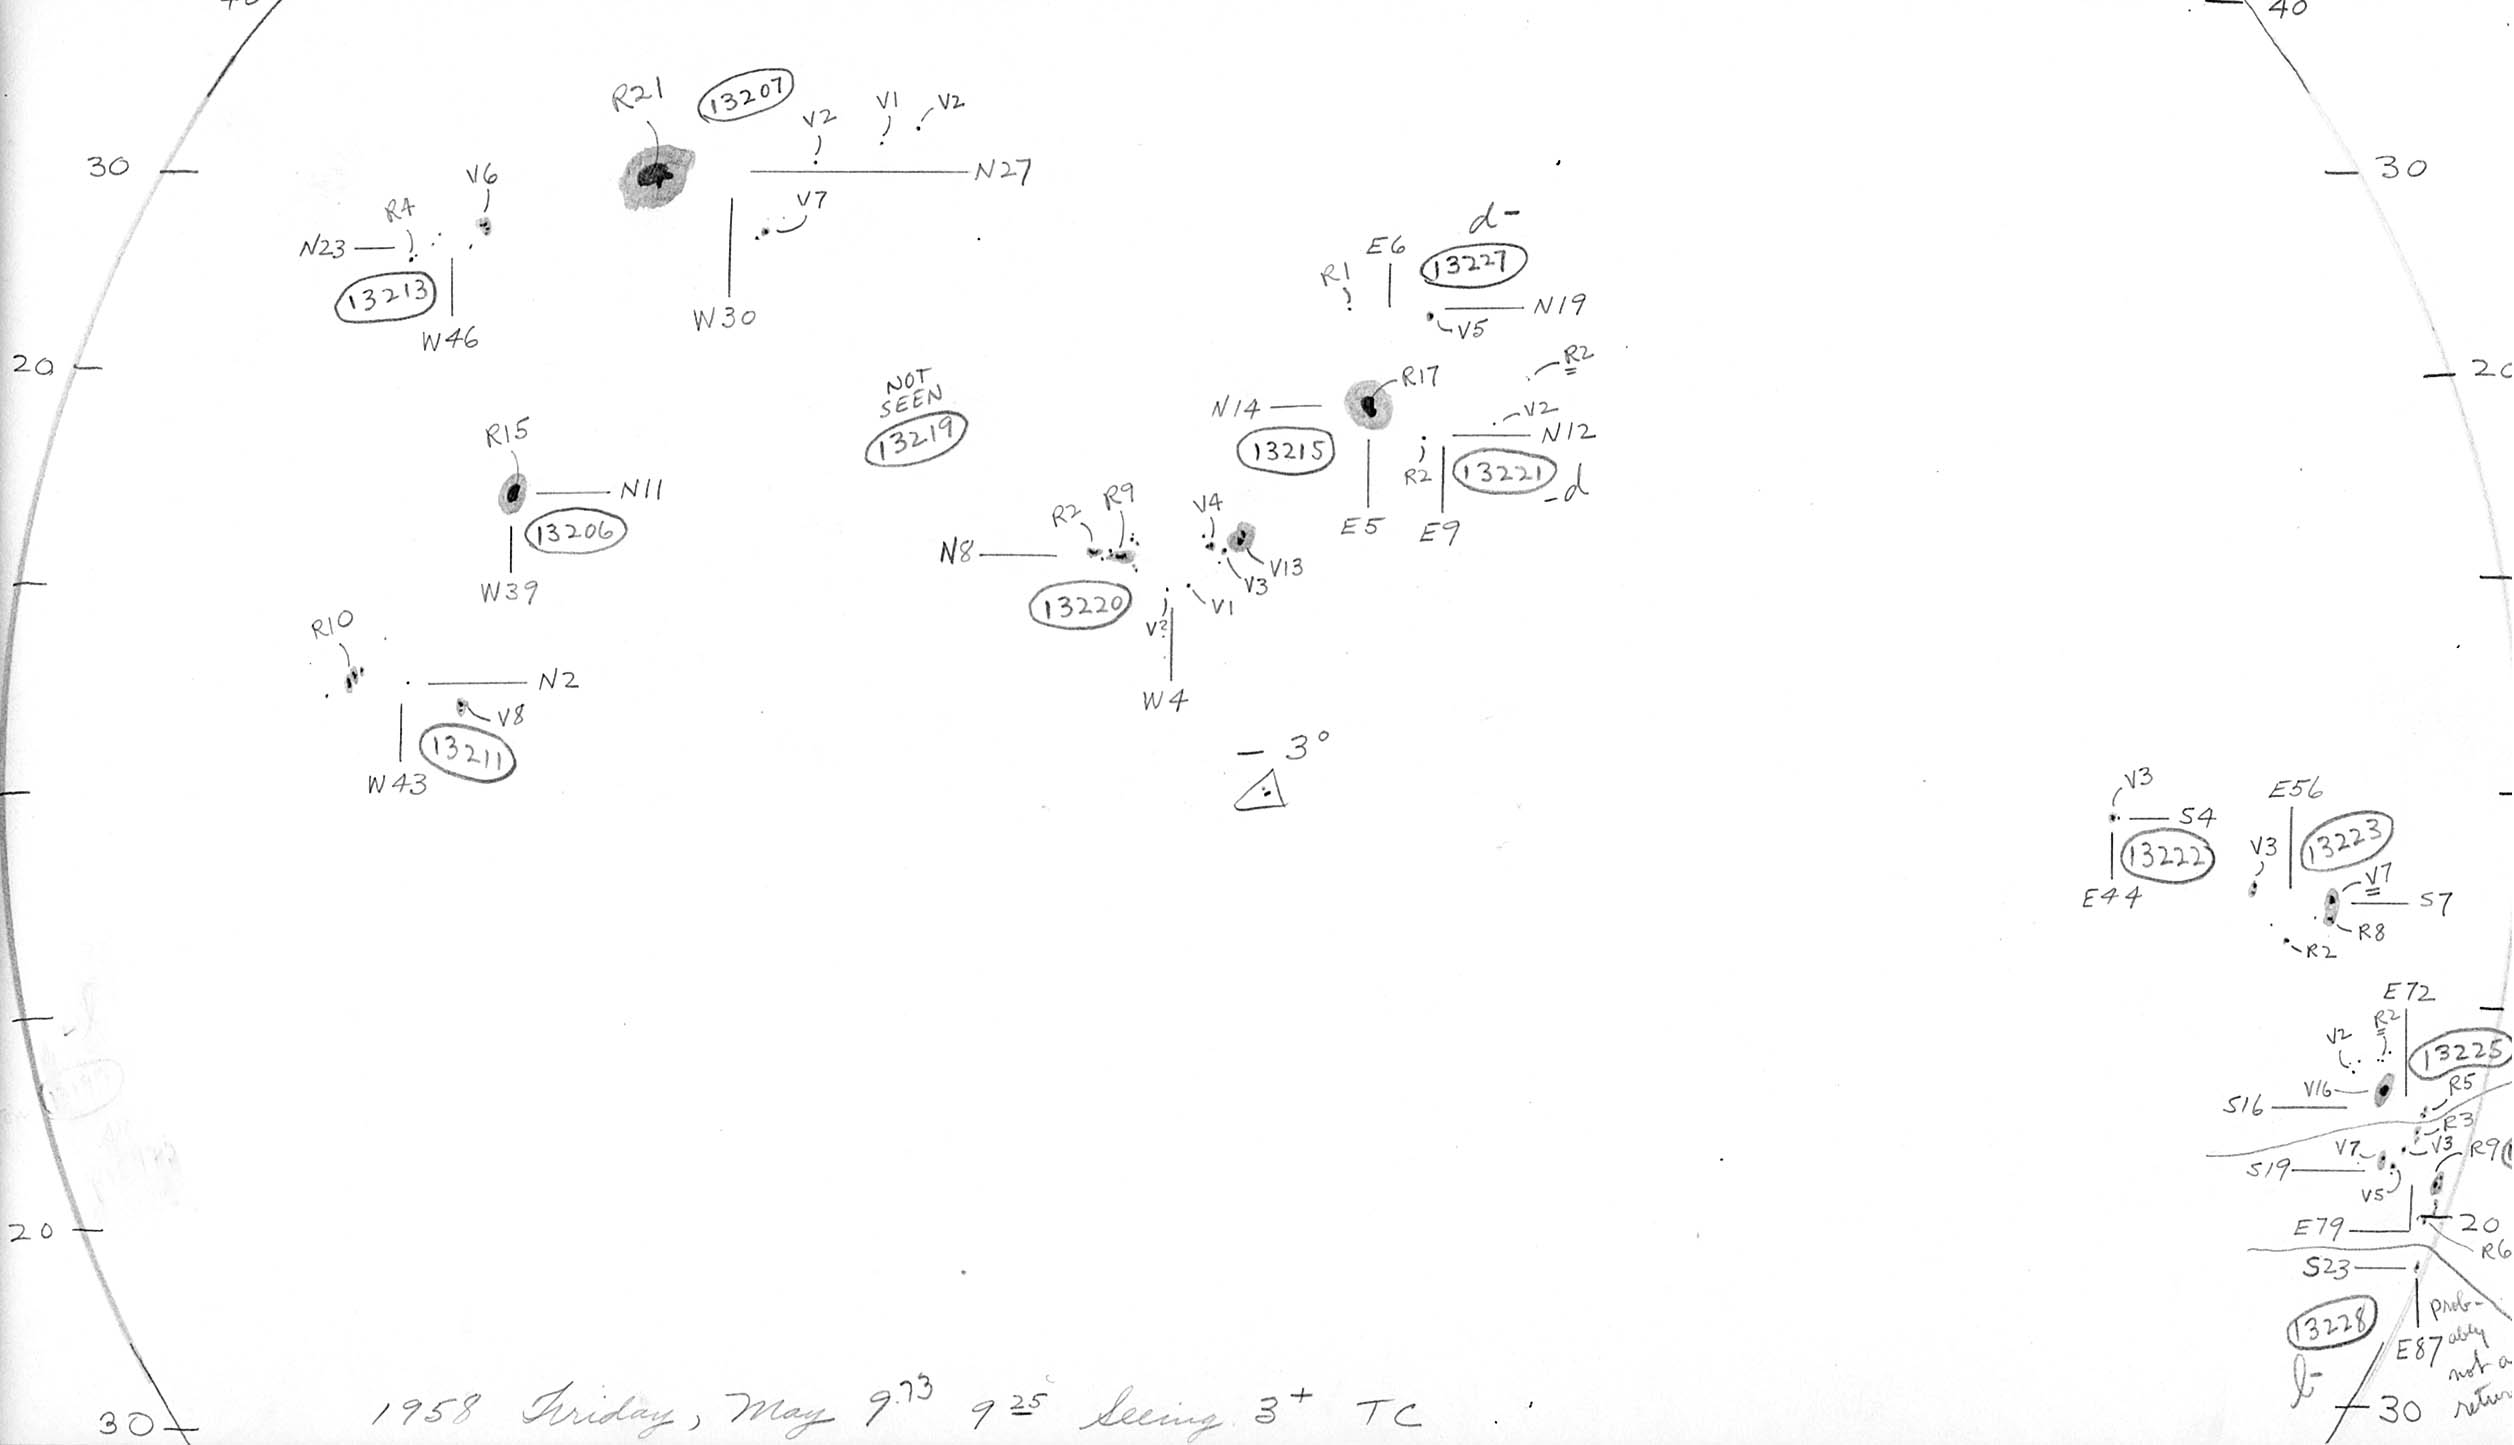 40
R21
13207
V2
V1
V2
30
N27
V6
V7
R4
N23
13213
W46
W30
20
R15
N11
13206
W39
R10
N2
V8
13211
W43
NOT
SEEN
13219
N8
R2
R9
V4
V13
V3
V1
13220
W4
- 3°
40
30
d-
E6
13227
R1
N19
V5
R2
R17
N14
V2
N12
13215
R2
13221
-d
E5
E9
V3
S4
13222
E44
E56
13223
V3
V7
S7
R8
R2
E72
R2
V2
13225
V16
R5
S16
R3
V7
V3
R9
S19
V5
E79
20
R6
S23
13228
prob-
E87 ably
not a
30
20
30
1958 Friday, May 9.73 9 25 Seeing 3+ TC